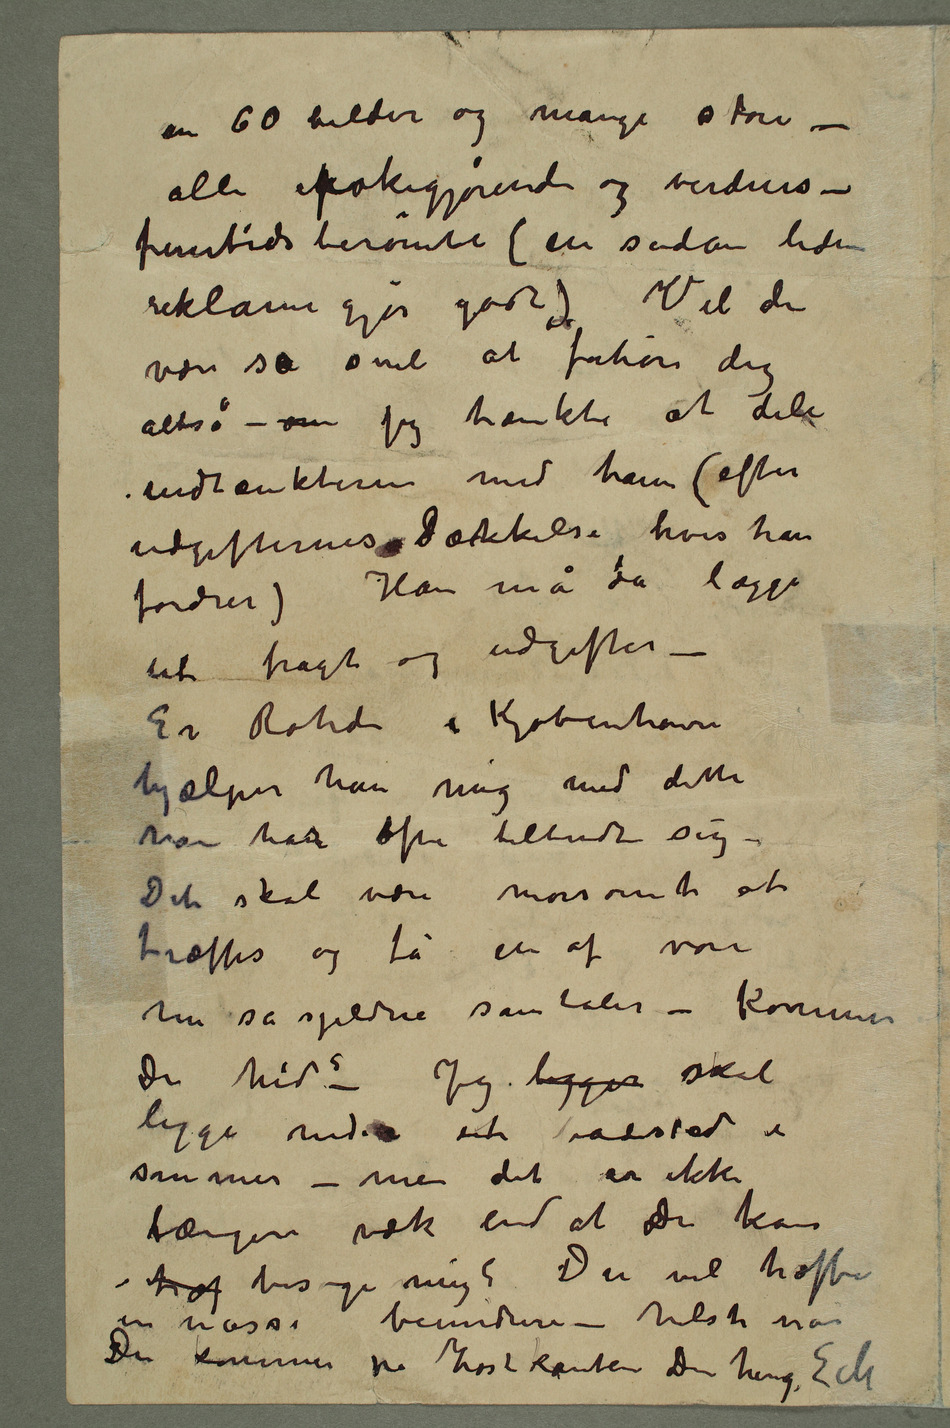 en 60 billder og mange store –
alle epokegjørende og verdens–
fremtidsberømte (en sådan liden
reklame gjør godt) Vil du
være så snil at forhøre dig
altså – om jeg tænkte at dele
indtækterne med ham (efter
udgifternes Dækkelse hvis han
fordrer) Han må da lægge
ut fragt og udgifter –
Er Rohde i Kjøbenhavn
hjælper han mig med dette
han har ofte tilbudt sig –
Det skal være morsomt at
træffes og få en af vore
nu så sjeldne samtaler – Kommer
De hid? – Jeg ligger skal
ligge ved et badested i
sommer – men det er ikke
længere væk end at De kan
træf besøge mig? Du vil træffe
en masse beundrere – helst når
Du kommer på Høstkanten Din heng. EM